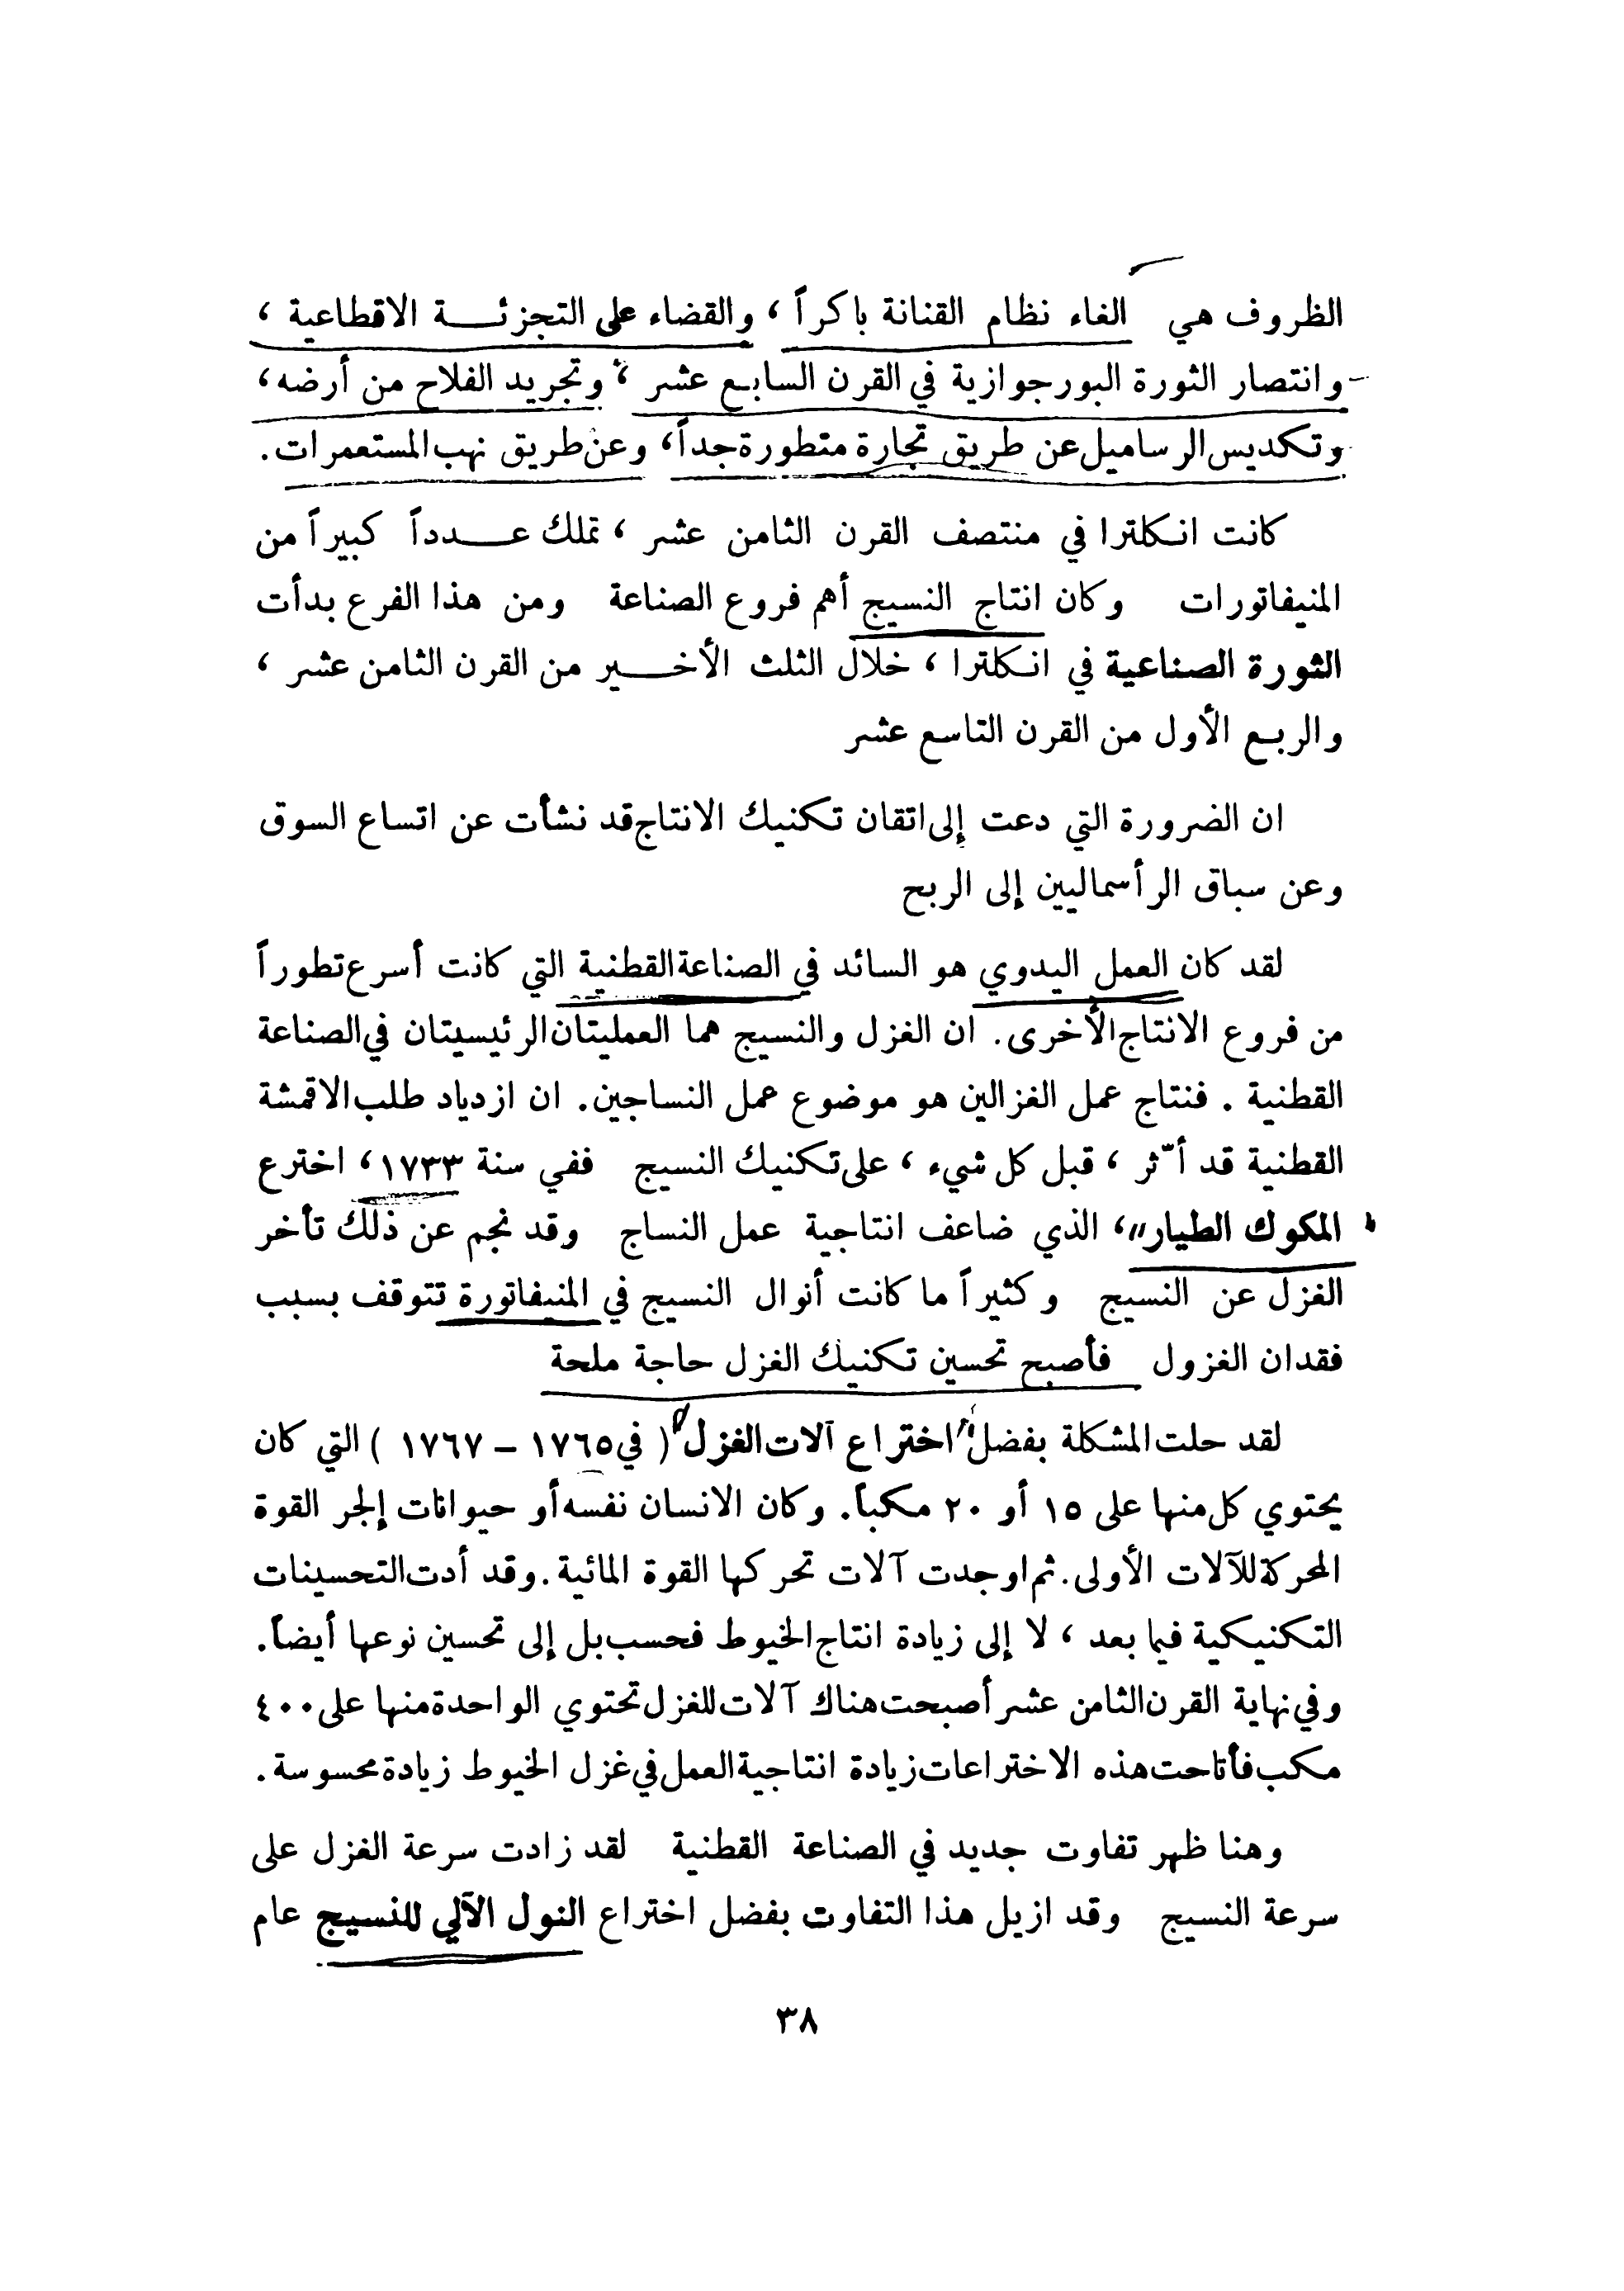 الظروف هي الغاء نظام القنانة باكراً ، والقضاء على التجزئـــة الاقطاعية ،
وانتصار الثورة البورجوازية في القرن السابع عشر ، وتجريد الفلاح من أرضه،
وتكديس الرساميل عن طريق تجارة متطورة جداً، وعن طريق نهب المستعمرات.
كانت انكلترا في منتصف القرن الثامن عشر ، تملك عـــدداً كبيراً من
المنيفاتورات وكان انتاج النسيج أهم فروع الصناعة ومن هذا الفرع بدأت
الثورة الصناعية في انكلترا ، خلال الثلث الأخـــير من القرن الثامن عشر ،
والربع الأول من القرن التاسع عشر
ان الضرورة التي دعت إلى اتقان تكنيك الانتاج قد نشأت عن اتساع السوق
وعن سباق الرأسماليين إلى الربح
لقد كان العمل اليدوي هو السائد في الصناعة القطنية التي كانت أسرع تطوراً
من فروع الانتاج الأخرى. ان الغزل والنسيج هما العمليتان الرئيسيتان في الصناعة
القطنية . فنتاج عمل الغزالين هو موضوع عمل النساجين. ان ازدياد طلب الاقمشة
القطنية قد أثّر ، قبل كل شيء ، على تكنيك النسيج ففي سنة ١٧٣٣، اخترع
المكوك الطيار"، الذي ضاعف انتاجية عمل النساج وقد نجم عن ذلك تأخر
الغزل عن النسيج وكثيراً ما كانت أنوال النسيج في المنيفاتورة تتوقف بسبب
فقدان الغزول فأصبح تحسين تكنيك الغزل حاجة ملحة
لقد حلت المشكلة بفضل "اختراع آلات الغزل" ( في ١٧٦٥ – ١٧٦٧ ) التي كان
يحتوي كل منها على ١٥ أو ٢٠ مكباً. وكان الانسان نفسه أو حيوانات الجر القوة
المحركة للآلات الأولى. ثم اوجدت آلات تحركها القوة المائية. وقد أدت التحسينات
التكنيكية فيما بعد ، لا إلى زيادة انتاج الخيوط فحسب بل إلى تحسين نوعها أيضاً.
وفي نهاية القرن الثامن عشر أصبحت هناك آلات للغزل تحتوي الواحدة منها على ٤٠٠
مكب فأتاحت هذه الاختراعات زيادة انتاجية العمل في غزل الخيوط زيادة محسوسة.
وهنا ظهر تفاوت جديد في الصناعة القطنية لقد زادت سرعة الغزل على
سرعة النسيج وقد ازيل هذا التفاوت بفضل اختراع النول الآلي للنسيج عام
٣٨